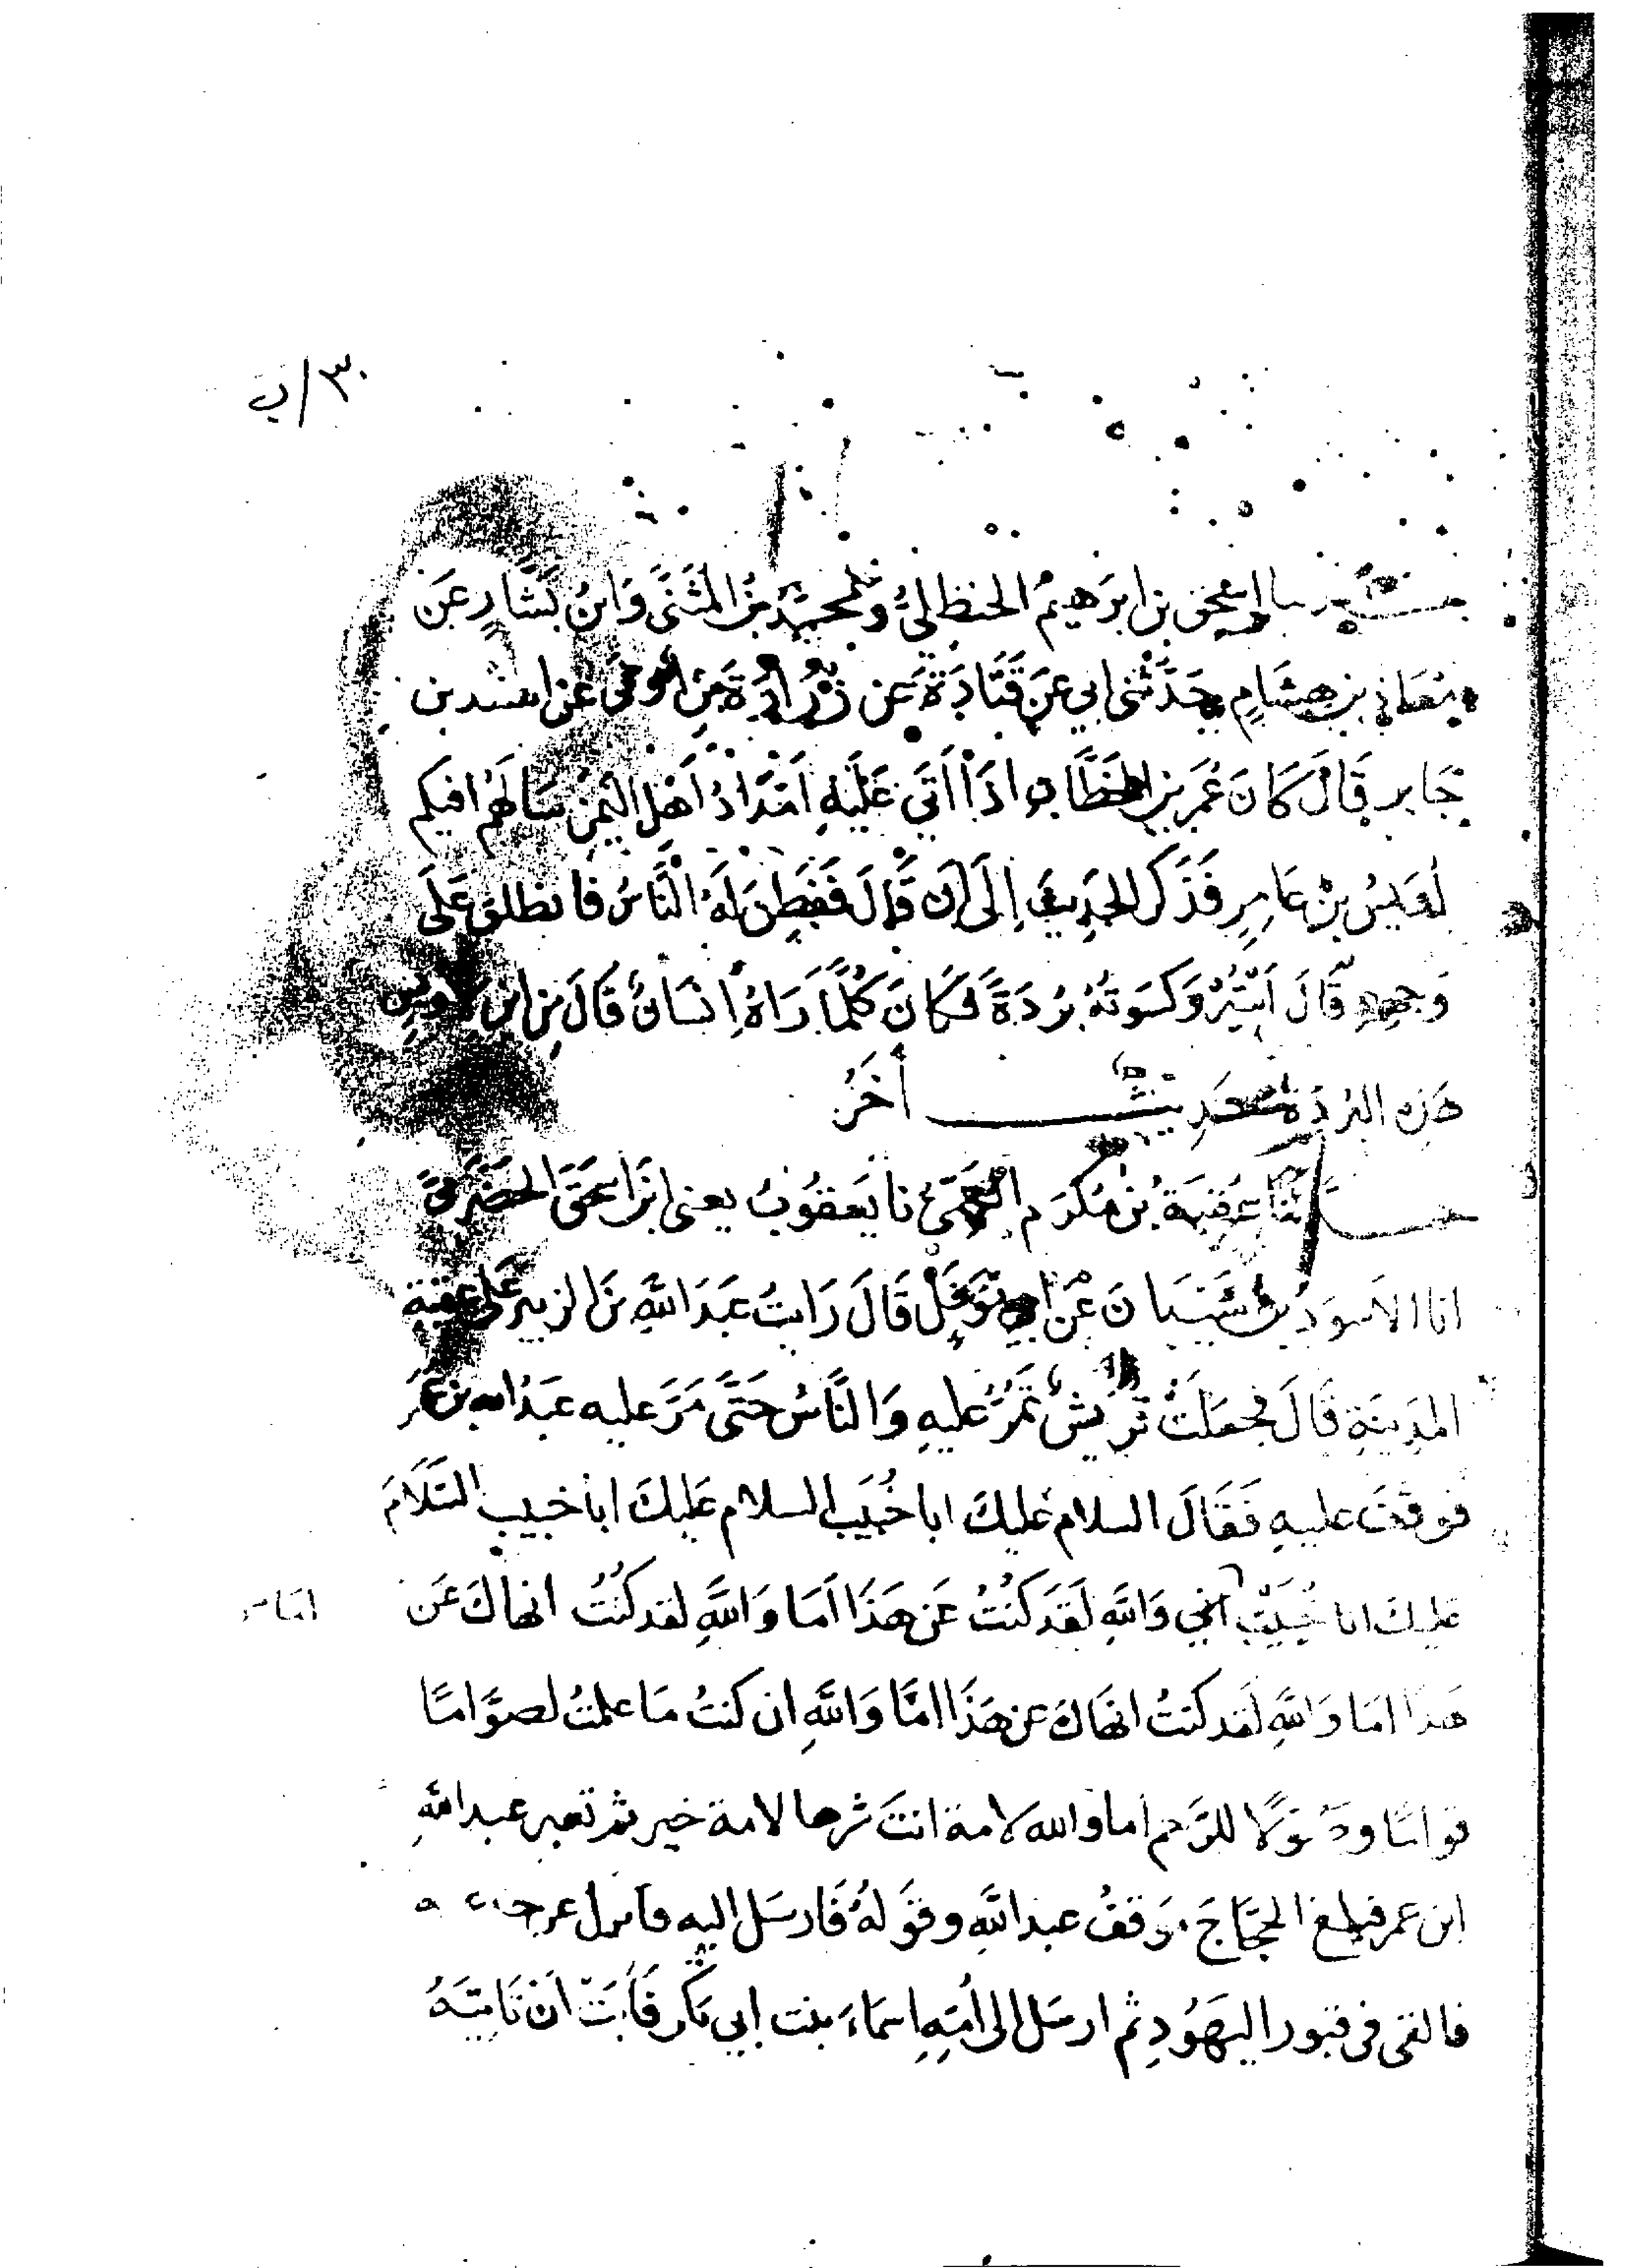 ٣٠/ب
حدثنا إسحق بن ابرهيم الحنظلي ومحمد بن المثنى وابن بشار عن
معاذ بن هشام حدثني ابي عن قتادة عن زرارة بن اوفى عن اسير بن
جابر قال كان عمر بن الخطاب اذا أتى عليه امداد اهل اليمن سالهم افيكم
اويس بن عامر فذكر الحديث إلى ان قال ففطن له الناس فانطلق على
وجهه قال اسير وكسوته بردة فكان كلما راه إنسان قال من اين لاويس
هذه البردة حديث أخر
حدثنا عقبة بن مكرم العمي نا يعقوب يعني ابن اسحق الحضرمي
انا الاسود بن شيبان عن ابي نوفل قال رايت عبد الله بن الزبير على عقبة
المدينة قال فجعلت قريش تمر عليه والناس حتى مر عليه عبد الله بن عمر
فوقف عليه فقال السلام عليك ابا خبيب السلام عليك ابا خبيب السلام
عليك ابا خبيب والله لقد كنت عن هذا أما والله لقد كنت انهاك عن
هذا اما والله لقد كنت انهاك عن هذا اما والله ان كنت ما علمت لصواما
قواما وصولا للرحم أما والله لامة انت شرها لامة خير ثم عبد الله
ابن عمر فبلغ الحجاج موقف عبد الله وقوله فارسل اليه فانزل عن جذعه
فالقى في قبور اليهود ثم ارسل الى أمه اسماء بنت ابي بكر فأبت أن تاتيه